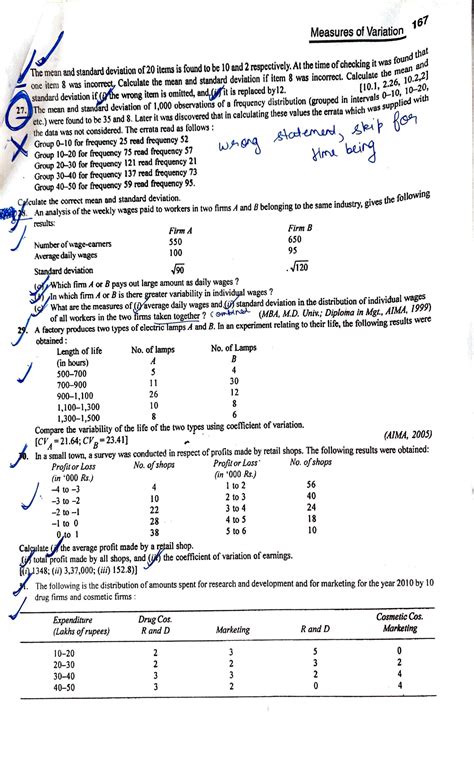 Measures of Variation 167
The mean and standard deviation of 20 items is found to be 10 and 2 respectively. At the time of checking it was found that
one item 8 was incorrect. Calculate the mean and standard deviation if item 8 was incorrect. Calculate the mean and
standard deviation if (i) the wrong item is omitted, and (ii) it is replaced by 12. [10.1, 2.26, 10.2,2]
27. The mean and standard deviation of 1,000 observations of a frequency distribution (grouped in intervals 0–10, 10–20,
etc.) were found to be 35 and 8. Later it was discovered that in calculating these values the errata which was supplied with
the data was not considered. The errata read as follows :
Group 0–10 for frequency 25 read frequency 52
Group 10–20 for frequency 75 read frequency 57
Group 20–30 for frequency 121 read frequency 21
Group 30–40 for frequency 137 read frequency 73
Group 40–50 for frequency 59 read frequency 95.
wrong statement, skip for
time being
Calculate the correct mean and standard deviation.
28. An analysis of the weekly wages paid to workers in two firms A and B belonging to the same industry, gives the following
results:
Firm A Firm B
Number of wage-earners 550 650
Average daily wages 100 95
Standard deviation √90 √120
(a) Which firm A or B pays out large amount as daily wages ?
(b) In which firm A or B is there greater variability in individual wages ?
(c) What are the measures of (i) average daily wages and (ii) standard deviation in the distribution of individual wages
of all workers in the two firms taken together ? (combined (MBA, M.D. Univ.; Diploma in Mgt., AIMA, 1999)
29. A factory produces two types of electric lamps A and B. In an experiment relating to their life, the following results were
obtained :
Length of life No. of lamps No. of Lamps
(in hours) A B
500–700 5 4
700–900 11 30
900–1,100 26 12
1,100–1,300 10 8
1,300–1,500 8 6
Compare the variability of the life of the two types using coefficient of variation.
[CVA = 21.64; CVB = 23.41] (AIMA, 2005)
30. In a small town, a survey was conducted in respect of profits made by retail shops. The following results were obtained:
Profit or Loss No. of shops Profit or Loss No. of shops
(in '000 Rs.) (in '000 Rs.)
–4 to –3 4 1 to 2 56
–3 to –2 10 2 to 3 40
–2 to –1 22 3 to 4 24
–1 to 0 28 4 to 5 18
0 to 1 38 5 to 6 10
Calculate (i) the average profit made by a retail shop.
(ii) total profit made by all shops, and (iii) the coefficient of variation of earnings.
[(i) 1348; (ii) 3,37,000; (iii) 152.8)]
31. The following is the distribution of amounts spent for research and development and for marketing for the year 2010 by 10
drug firms and cosmetic firms :
Expenditure Drug Cos. Cosmetic Cos.
(Lakhs of rupees) R and D Marketing R and D Marketing
10–20 2 3 5 0
20–30 2 2 3 2
30–40 3 3 2 4
40–50 3 2 0 4